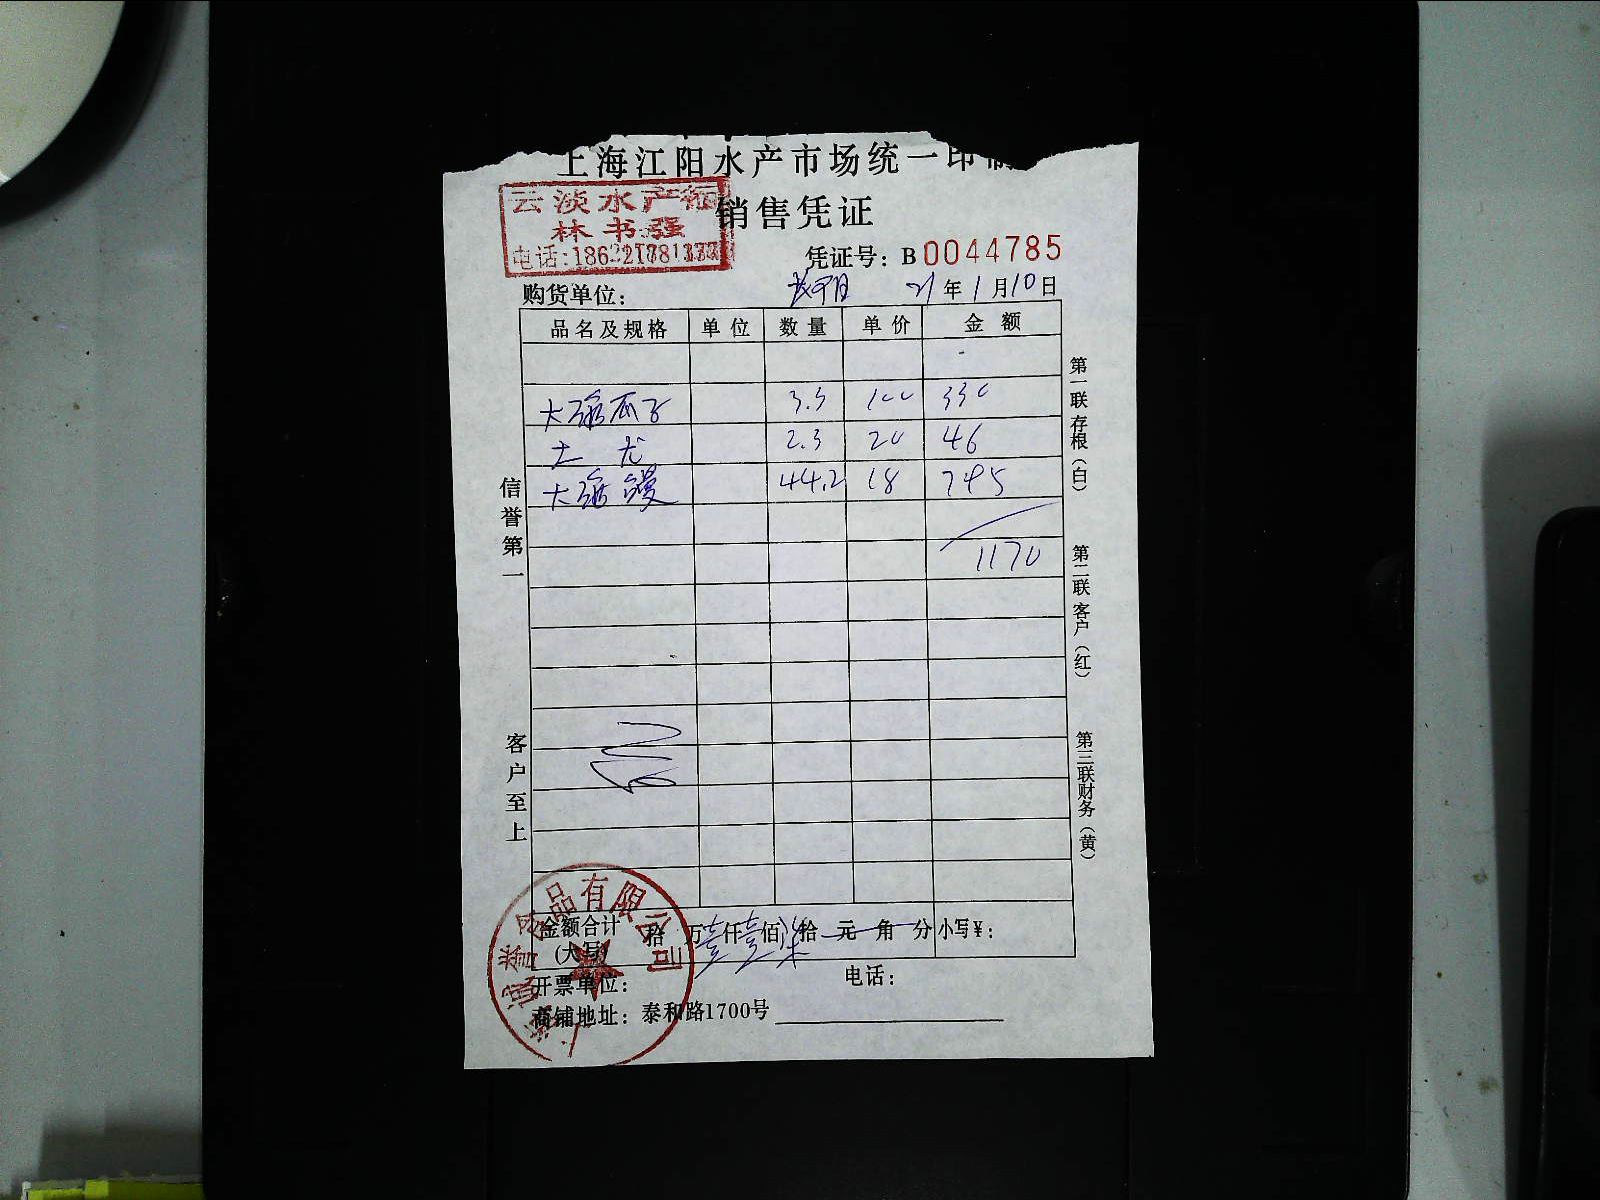 上海江阳水产市场统一印制
云淡水产行
林书强
电话:186
销售凭证
凭证号：B0044785
购货单位： 21年1月10日
品名及规格 单位 数量 单价 金额
3.3 100 330
2.3 20 46
44.2 18 795
1170
信誉第一
客户至上
第一联存根（白）
第二联客户（红）
第三联财务（黄）
金额合计(大写) 拾 万壹仟壹佰柒拾 元 角 分 小写¥：
开票单位： 电话：
商铺地址：泰和路1700号
诚誉食品有限公司